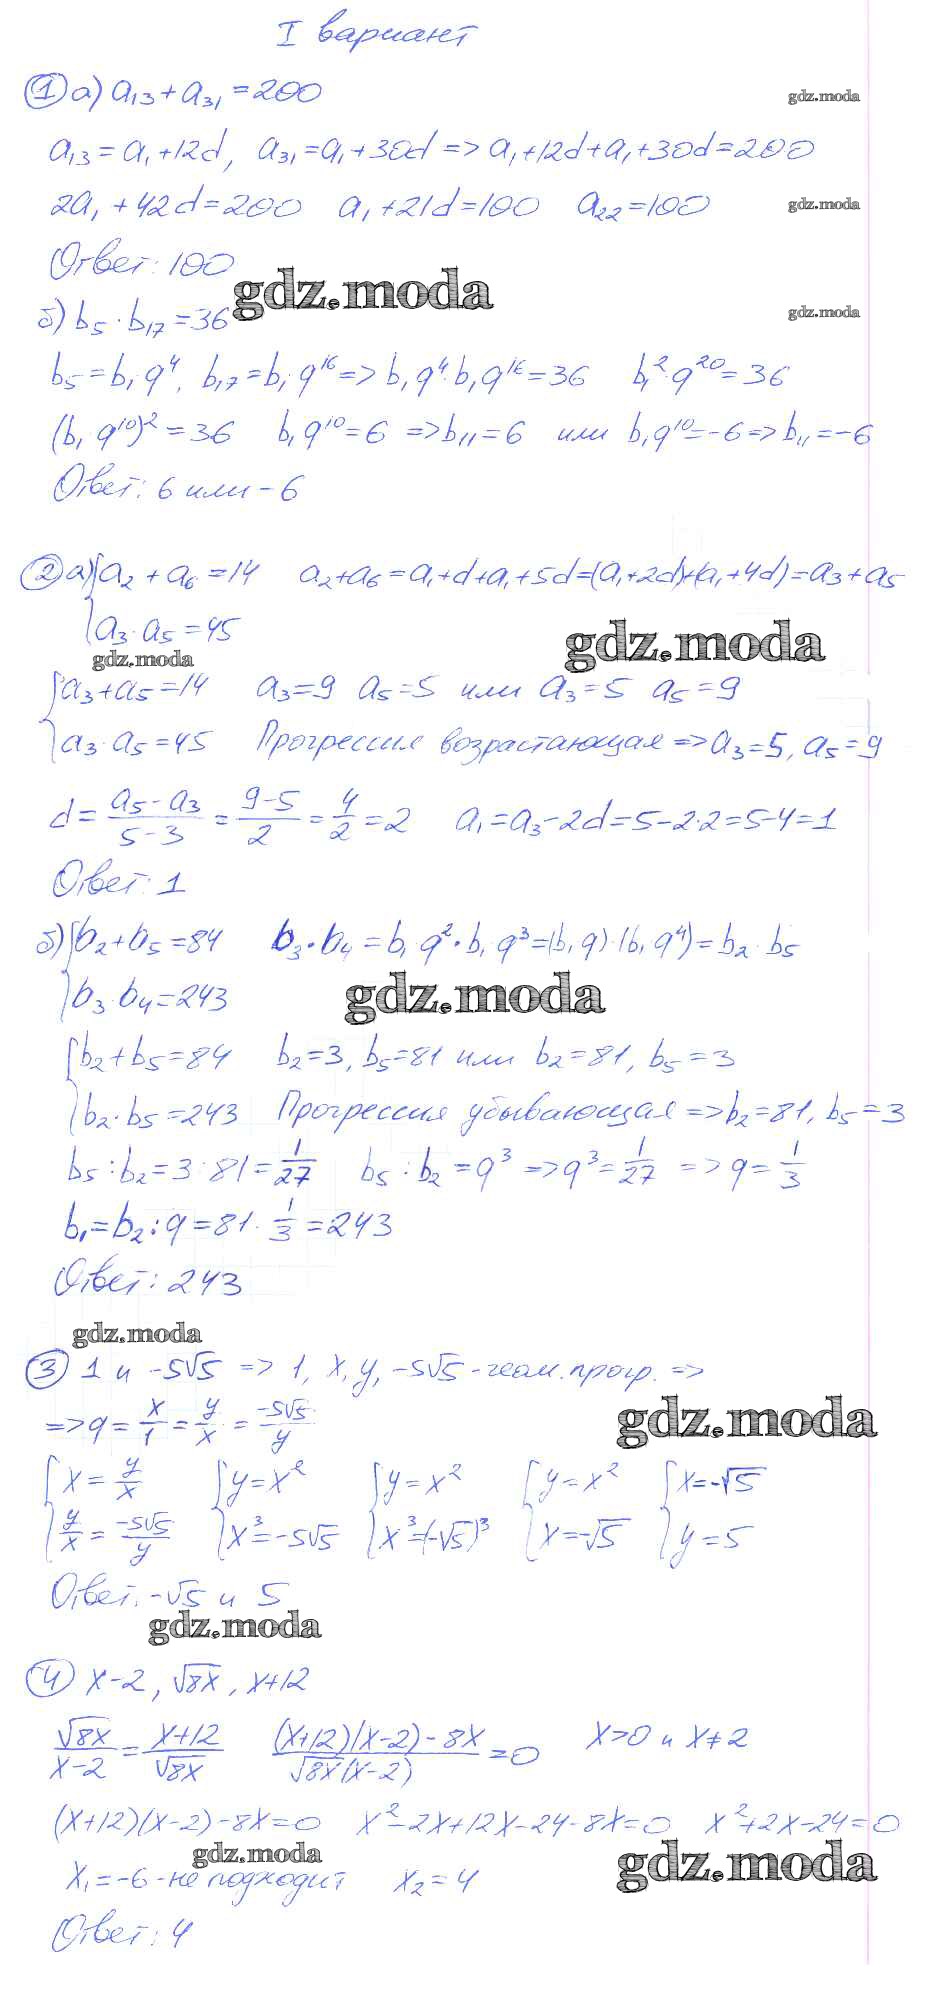 I вариант
① а) a₁₃ + a₃₁ = 200
gdz.moda
a₁₃ = a₁ + 12d, a₃₁ = a₁ + 30d => a₁ + 12d + a₁ + 30d = 200
2a₁ + 42d = 200 a₁ + 21d = 100 a₂₂ = 100
gdz.moda
Ответ: 100
gdz.moda
б) b₅ · b₁₇ = 36
gdz.moda
b₅ = b₁ q⁴, b₁₇ = b₁ · q¹⁶ => b₁ q⁴ · b₁ q¹⁶ = 36 b₁² · q²⁰ = 36
(b₁ q¹⁰)² = 36 b₁ q¹⁰ = 6 => b₁₁ = 6 или b₁ q¹⁰ = -6 => b₁₁ = -6
Ответ: 6 или -6
② а) { a₂ + a₆ = 14 a₂ + a₆ = a₁ + d + a₁ + 5d = (a₁ + 2d) + (a₁ + 4d) = a₃ + a₅
a₃ · a₅ = 45
gdz.moda
gdz.moda
{ a₃ + a₅ = 14 a₃ = 9 a₅ = 5 или a₃ = 5 a₅ = 9
a₃ · a₅ = 45 Прогрессия возрастающая => a₃ = 5, a₅ = 9
d = (a₅ - a₃)/(5 - 3) = (9 - 5)/2 = 4/2 = 2 a₁ = a₃ - 2d = 5 - 2·2 = 5 - 4 = 1
Ответ: 1
б) { b₂ + b₅ = 84 b₃ · b₄ = b₁ q² · b₁ q³ = (b₁ q) · (b₁ q⁴) = b₂ · b₅
b₃ · b₄ = 243
gdz.moda
{ b₂ + b₅ = 84 b₂ = 3, b₅ = 81 или b₂ = 81, b₅ = 3
b₂ · b₅ = 243 Прогрессия убывающая => b₂ = 81, b₅ = 3
b₅ : b₂ = 3 : 81 = 1/27 b₅ : b₂ = q³ => q³ = 1/27 => q = 1/3
b₁ = b₂ : q = 81 · 1/3 = 243
Ответ: 243
gdz.moda
③ 1 и -5√5 => 1, x, y, -5√5 - геом. прогр. =>
gdz.moda
=> q = x/1 = y/x = -5√5/y
{ x = y/x { y = x² { y = x² { y = x² { x = -√5
y/x = -5√5/y x³ = -5√5 x³ = (-√5)³ x = -√5 y = 5
Ответ: -√5 и 5
gdz.moda
④ x - 2, √8x, x + 12
√8x/(x - 2) = (x + 12)/√8x ((x + 12)(x - 2) - 8x)/(√8x (x - 2)) = 0 x > 0 и x ≠ 2
(x + 12)(x - 2) - 8x = 0 x² - 2x + 12x - 24 - 8x = 0 x² + 2x - 24 = 0
gdz.moda
gdz.moda
x₁ = -6 - не подходит x₂ = 4
Ответ: 4